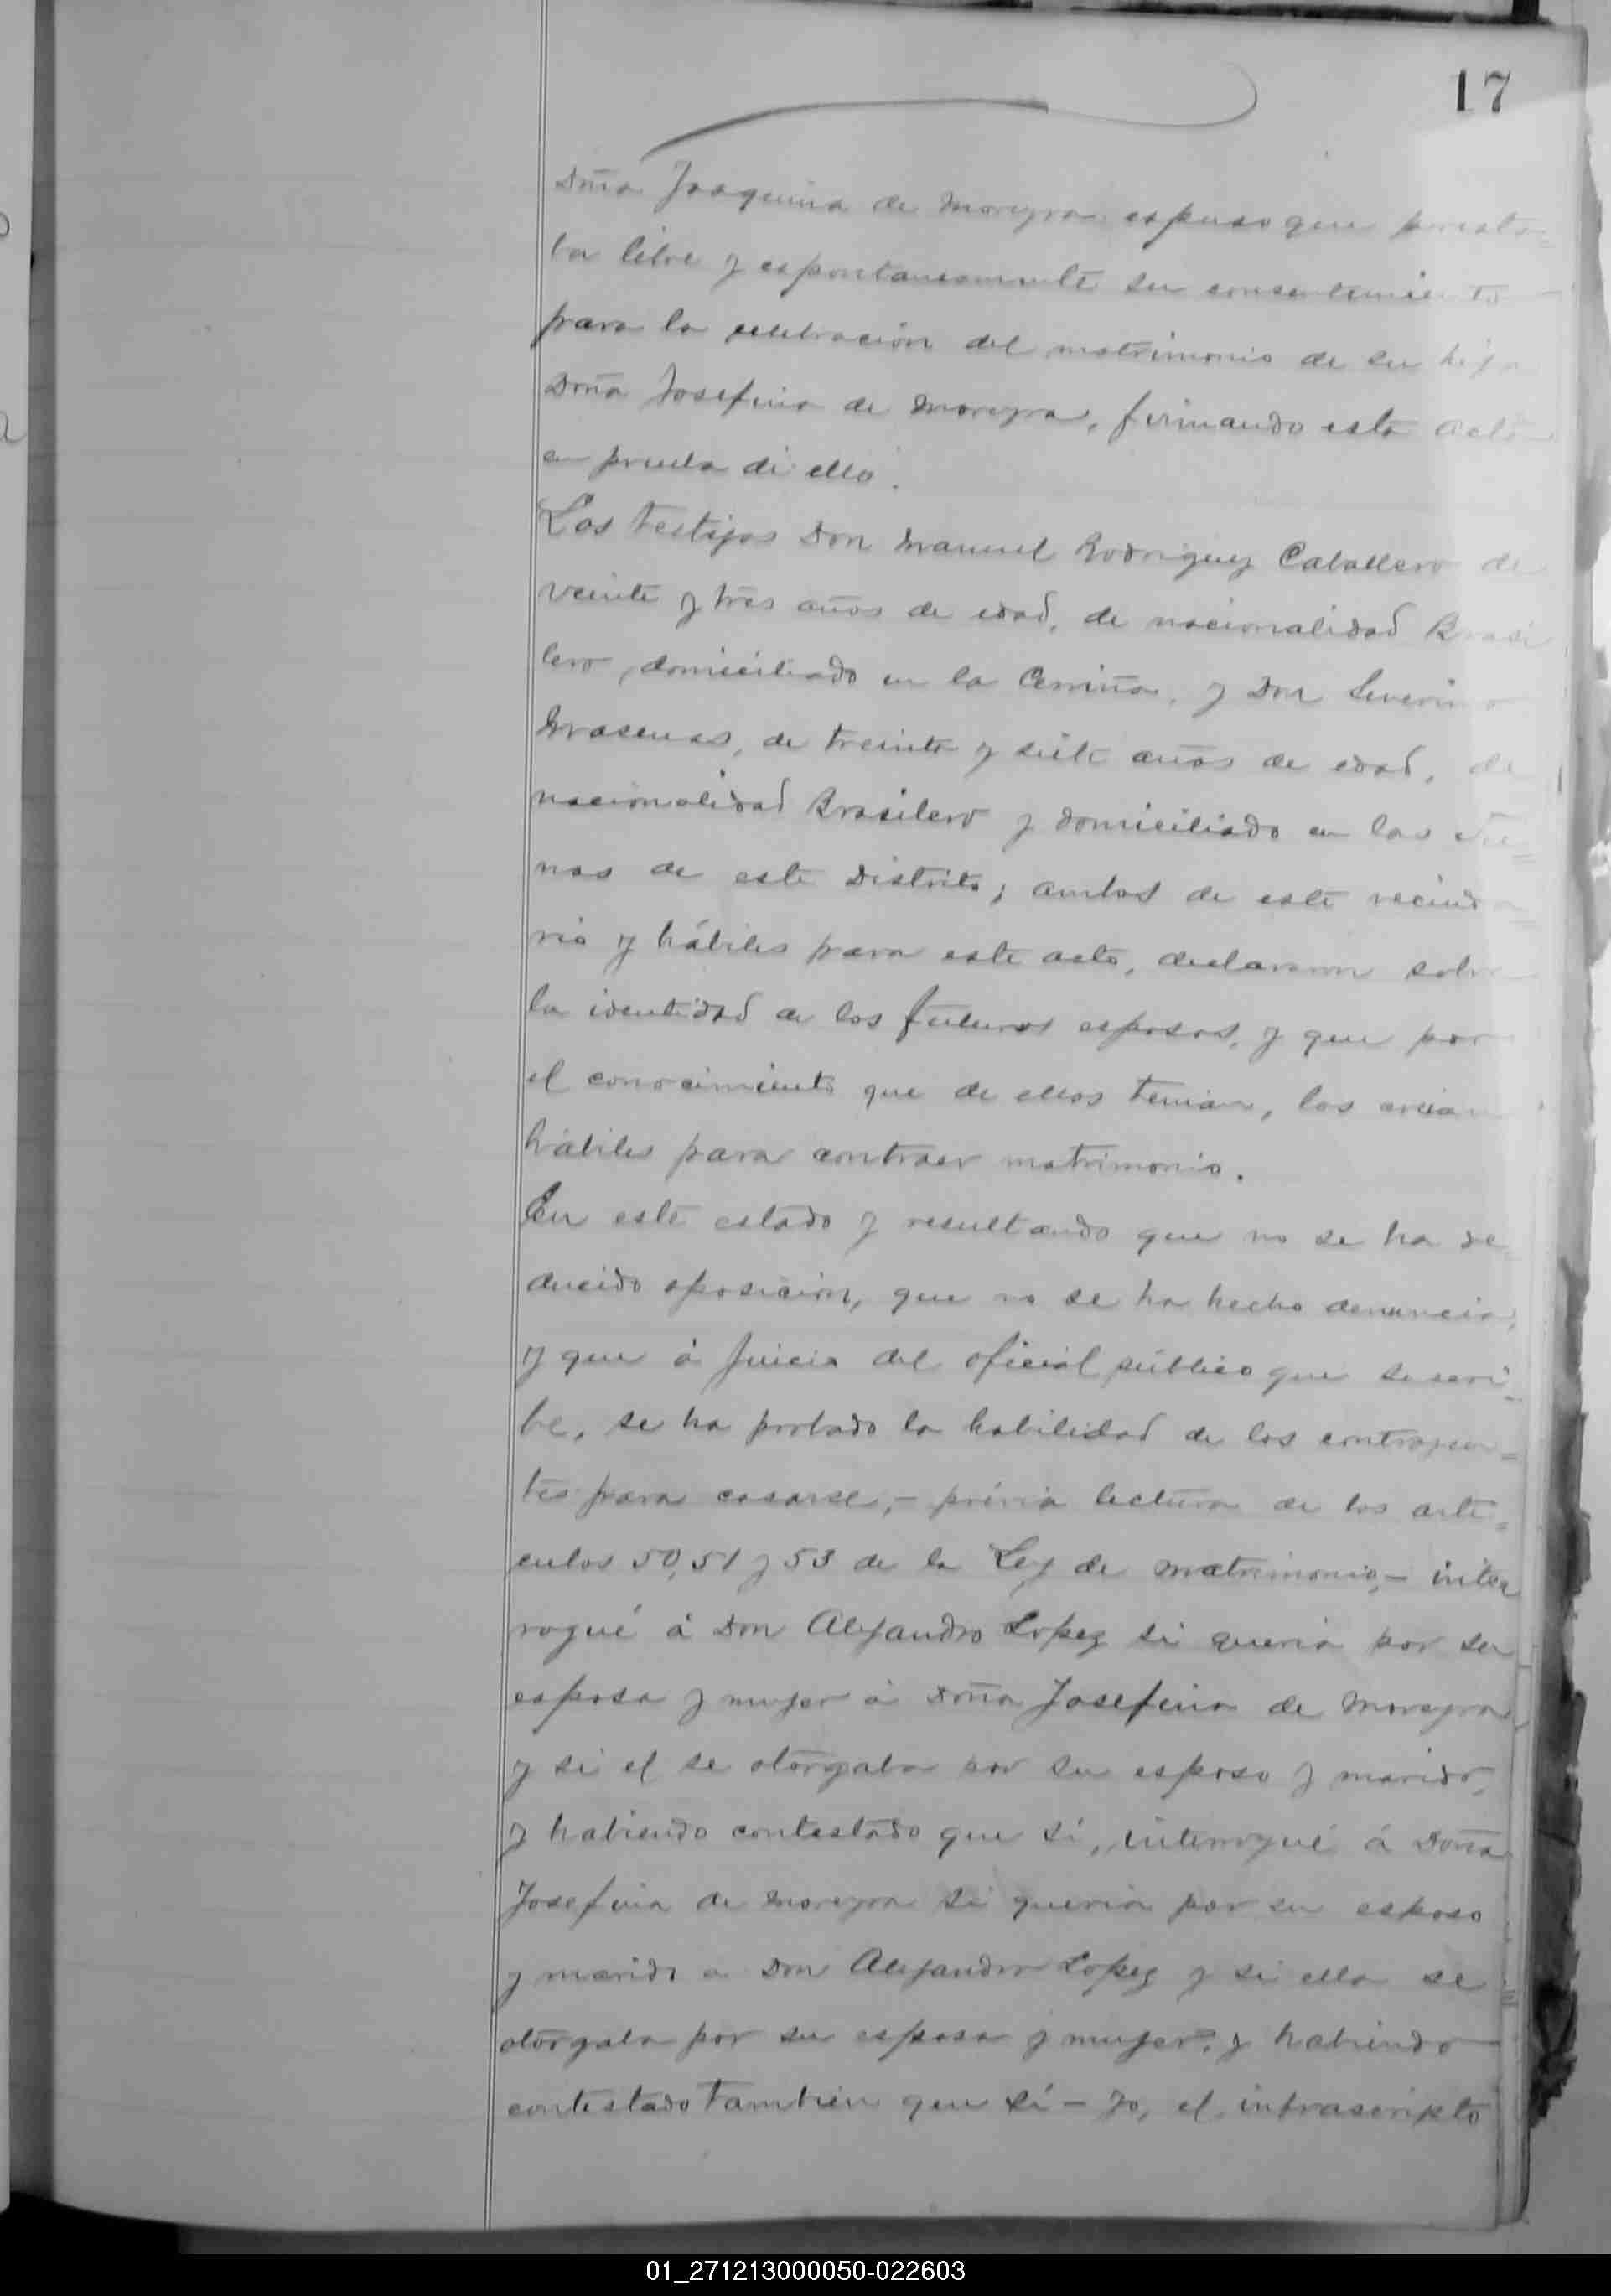 17
Dña Joaquina de Moreyra espuso que presta=
ba libre y espontaneamente su consentimiento
para la celebracion del matrimonio de su hija
Doña Josefina de Moreyra, firmando esta acta
en prueba de ello.
Los testigos Don Manuel Rodriguez Caballero de
veinte y tres años de edad, de nacionalidad Brasi
lero, domiciliado en la y Don Severino
de treinta y siete años de edad, de
nacionalidad Brasilero y domiciliado en las
nas de este Distrito; ambos de este vecinda=
rio y hábiles para este acto, declararon sobre
la identidad de los futuros esposos, y que por
el conocimiento que de ellos tenian, los creian
hábiles para contraer matrimonio.
En este estado y resultando que no se ha de
ducido oposicion, que no se ha hecho denuncia,
y que á juicio del oficial público que suscri=
be, se ha probado la habilidad de los contrayen=
tes para casarse,- prévia lectura de los artí=
culos 50, 51 y 53 de la Ley de Matrimonio,- inter
rogué á Don Alejandro Lopez si queria por su
esposa y mujer á Doña Josefina de Moreyra
y si el se otorgaba por su esposo y marido,
y habiendo contestado que si, interrogué á Doña
Josefina de Moreyra si queria por su esposo
y marido a Don Alejandro Lopez y si ella se
otorgaba por su esposa y mujer, y habiendo
contestado tambien que sí - Yo, el infrascripto
01_271213000050-022603